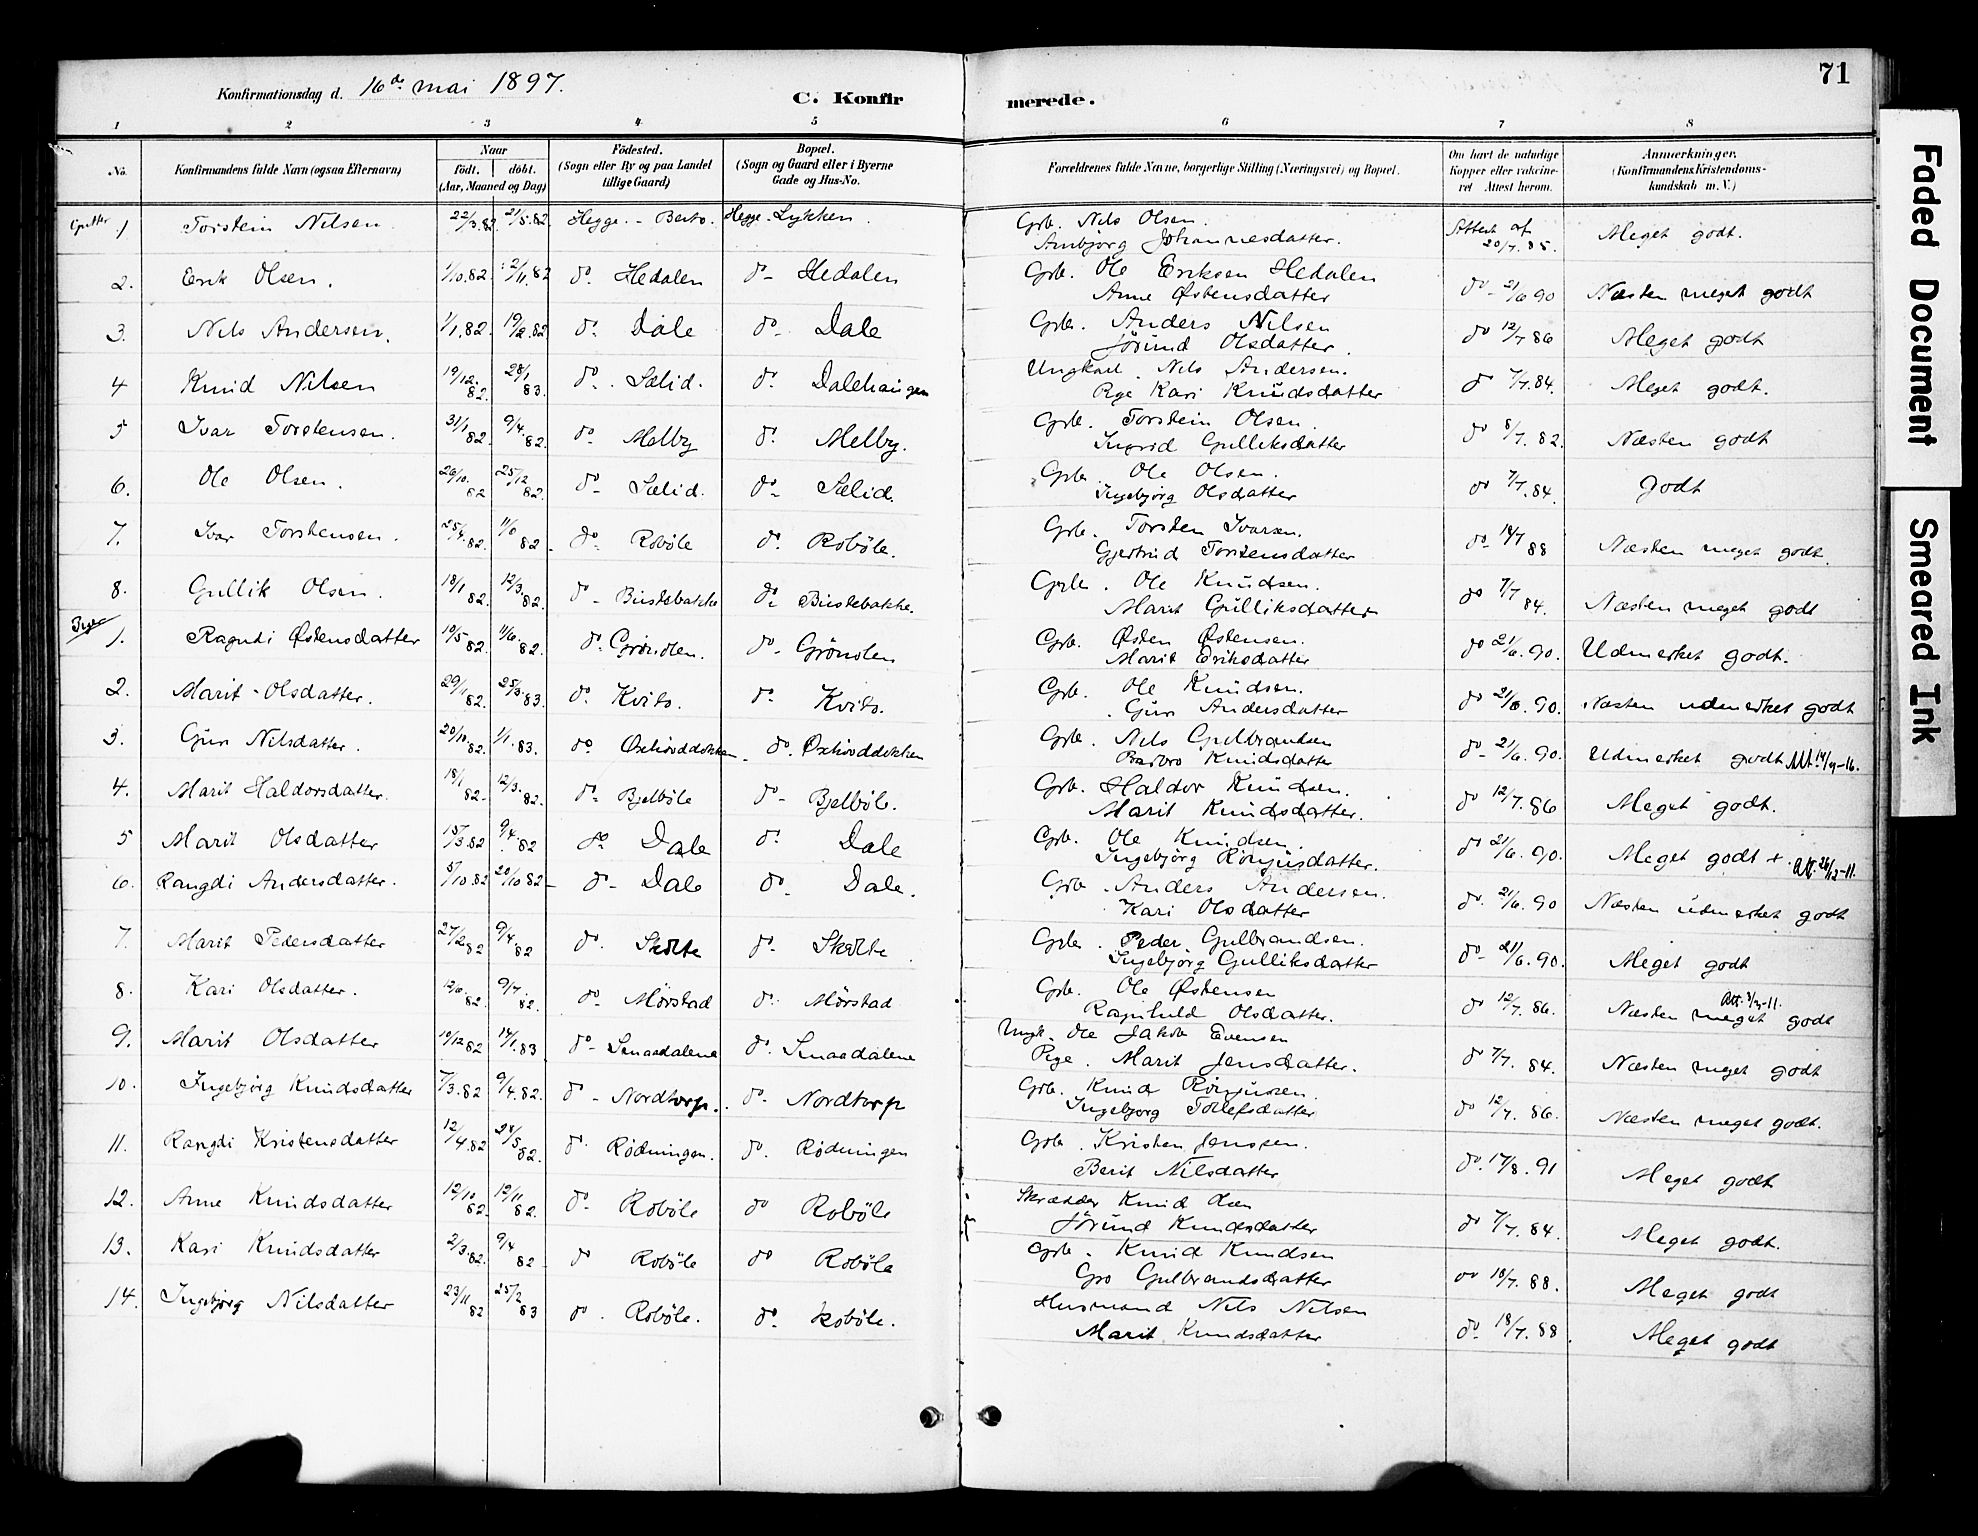 71
Konfirmationsdag d. 16de mai 1897.
C. Konfirmerede.
1 2 3 4 5 6 7 8
No. Konfirmandens fulde Navn (ogsaa Efternavn) Naar født. døbt. (Aar, Maaned og Dag) Fødested. (Sogn eller By og paa Landet tillige Gaard) Bopæl. (Sogn og Gaard eller i Byerne Gade og Hus-No. Forældrenes fulde Navne, borgerlige Stilling (Næringsvei) og Bopæl. Om havt de naturlige Kopper eller vakcineret Attest herom. Anmærkninger. (Konfirmandens Kristendomskundskab m. V.)
Gutter 1 Torstein Nilsen 22/3.82 21/5.82 Hegge - Berto. Hegge. Lykken. Grb. Nils Olsen. Attest af 20/7.85. Meget godt.
Ambjørg Johannesdatter.
2. Erik Olsen. 1/10.82 12/11.82 do. Hedalen do - Hedalen Grb. Ole Eriksen Hedalen do - 21/6 90 Næsten meget godt
Anne Østensdatter
3. Nils Andersen. 1/1.82. 19/2.82 do. Dale do. Dale Grb. Anders Nilsen do 12/7 86 Meget godt
Jørund Olsdatter.
4 Knud Nilsen 19/12.82. 28/1 83. do. Sælid. do. Dalehaugen Ungkarl. Nils Andersen. do 7/7.84. Meget godt.
Pige Kari Knudsdatter
5 Ivar Torstensen. 31/1 82. 9/4.82. do. Melby do. Melby. Grb. Torstein Olsen. do 8/7.82. Næsten godt
Ingrid Gulliksdatter
6. Ole Olsen. 26/10.82 25/12 82. do - Sælid. do - Sælid. Grb. Ole Olsen. do 7/7.84. Godt
Ingebjørg Olsdatter
7. Ivar Torstensen. 25/4.82. 11/6 82. do. Robøle do. Robøle. Grb. Torsten Ivarsen. do - 14/7 88 Næsten meget godt.
Gjertrud Torstensdatter
8. Gullik Olsen. 18/1 82. 12/3.82. do - Bustebakke do - Bustebakke. Grb. Ole Knudsen. do 7/7 84. Næsten meget godt
Marit Gulliksdatter
Piger 1. Ragndi Østensdatter 10/5 82. 11/6.82. do. Grønolen. do - Grønolen Grb. Østen Østensen. do 21/6.90. Udmerket godt.
Marit Eriksdatter
2. Marit Olsdatter. 29/11 82. 25/3.83. do. Kvito. do. Kvito. Grb. Ole Knudsen. do 21/6.90. Næsten udmerket godt
Guri Andersdatter
3. Guri Nilsdatter. 20/10 82. 1/1.83. do. Oxhovdbakken do. Oxhovdbakken Grb. Nils Gulbrandsen do - 21/6.90. Udmerket godt Att. 14/9-16.
Barbro Knudsdatter
4. Marit Haldorsdatter. 18/1 82. 12/3.82. do - Bjelbøle do - Bjelbøle. Grb. Haldor Knudsen. do 12/7.86 Meget godt.
Marit Knudsdatter.
5 Marit Olsdatter 15/3.82 9/4.82 do Dale do. Dale Grb. Ole Knudsen do 21/6.90. Meget godt +. Att. 26/12-11.
Ingebjørg Rønjusdatter.
6. Rangdi Andersdatter. 8/10.82 20/10 82 do - Dale do - Dale. Grb. Anders Andersen. do. 21/6.90 Næsten udmerket godt
Kari Olsdatter
7. Marit Pedersdatter 27/2 82 9/4 82 do. Skølte do - Skølte Grb. Peder Gulbrandsen. do - 21/6.90. Meget godt
Ingebjørg Gulliksdatter
8. Kari Olsdatter. 12/6.82. 9/7.82. do. Mørstad do. Mørstad Grb. Ole Østensen do 12/7.86. Næsten meget godt Att. 3/9-11.
Ragnhild Olsdatter.
9. Marit Olsdatter 10/12 82 14/1.83 do - Smaadalene do. Smaadalene Ungk. Ole Jakob Evensen do 7/7.84. Næsten meget godt
Pige. Marit Jensdatter.
10. Ingebjørg Knudsdatter 7/3.82 9/4.82. do - Nordtorp. do. Nordtorp Grb. Knud Rønjusen. do 12/7.86. Næsten meget godt.
Ingebjørg Tollefsdatter
11. Rangdi Kristensdatter 12/4.82 28/5 82. do. Rødningen. do. Rødningen Grb. Kristen Jensen. do. 17/8.91 Meget godt
Berit Nilsdatter
12. Anne Knudsdatter 12/10 82. 12/11 82. do - Robøle do Robøle Skrædder Knud Olsen do 7/7.84. Meget godt.
Jørund Knudsdatter
13. Kari Knudsdatter 2/3.82. 9/4 82 do Robøle do Robøle Grb. Knud Knudsen do 18/7.88. Meget godt
Gro Gulbrandsdatter
14. Ingebjørg Nilsdatter 23/11 82 25/2 83 do. Robøle. do. Robøle. Husmand Nils Nilsen do. 18/7.88. Meget godt
Marit Knudsdatter
Faded Document
Smeared Ink